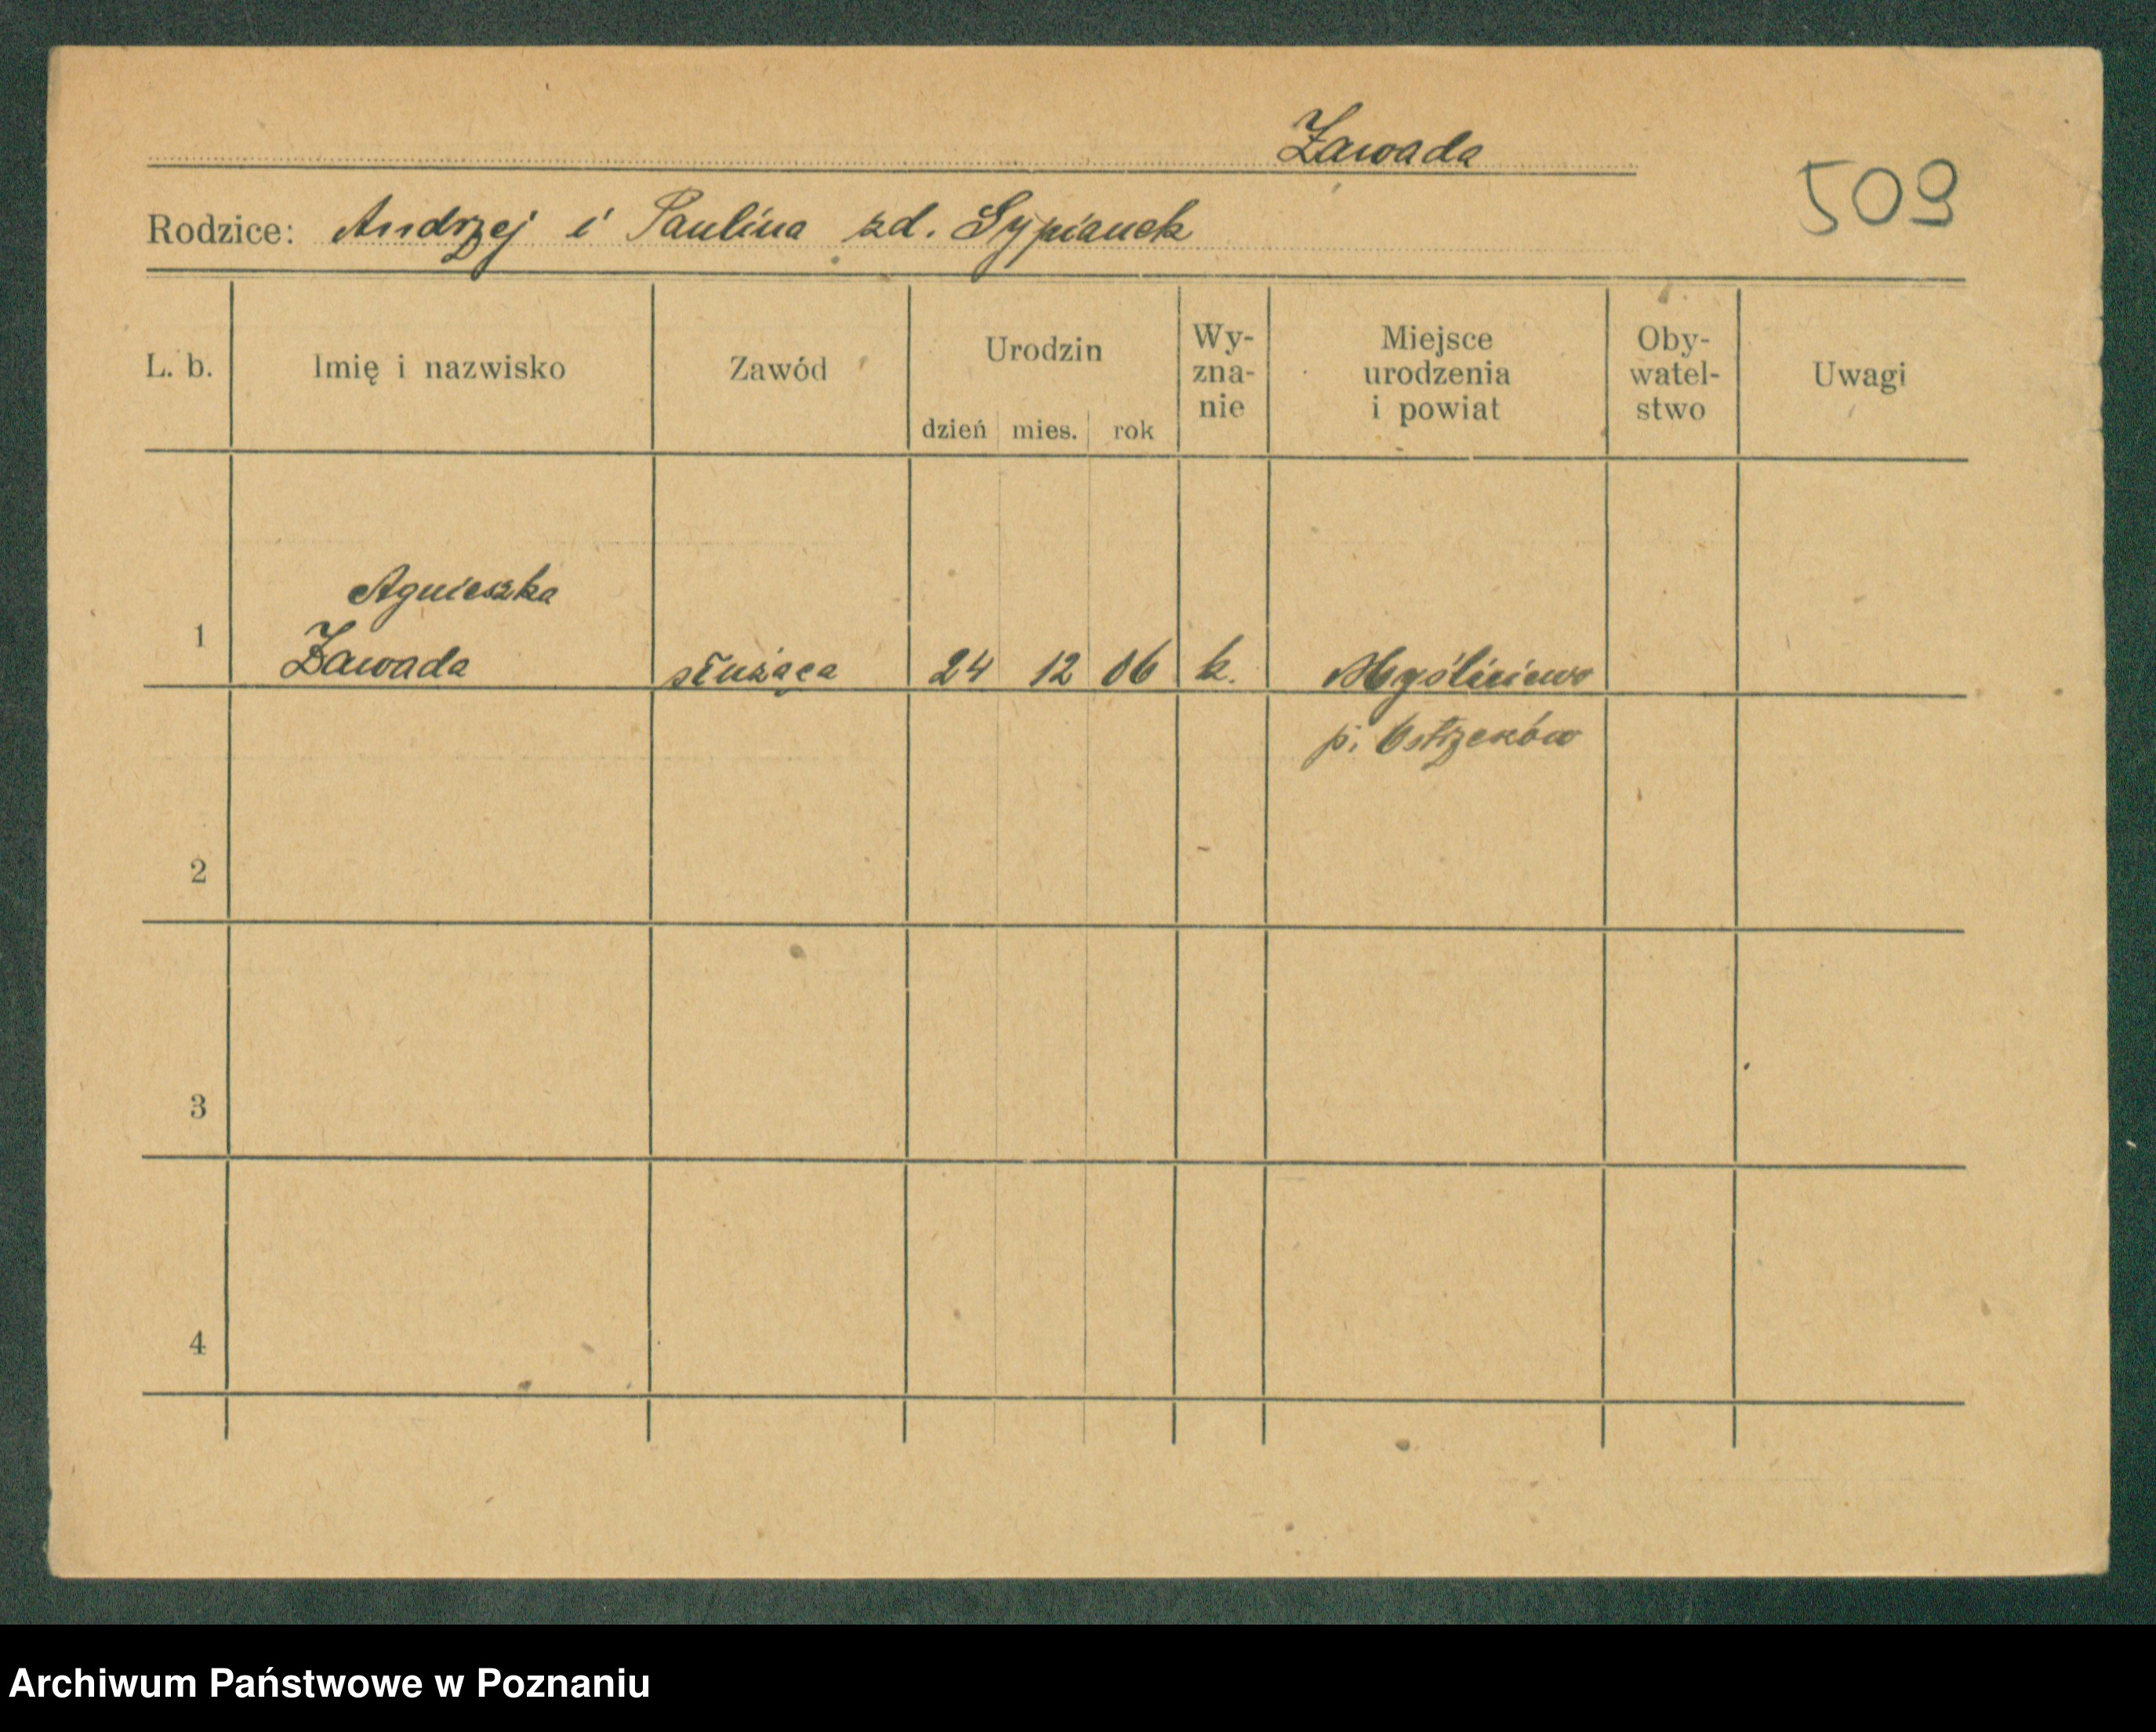 Zawada
509
Rodzice: Andrzej i Paulina zd. Sypianek
L. b.
Imię i nazwisko
Zawód
Urodzin
dzień mies. rok
Wy-
zna-
nie
Miejsce
urodzenia
i powiat
Oby-
watel-
stwo
Uwagi
Agnieszka
1 Zawada służąca 24 12 06 k.
p. Ostrzeszów
2
3
4
Archiwum Państwowe w Poznaniu